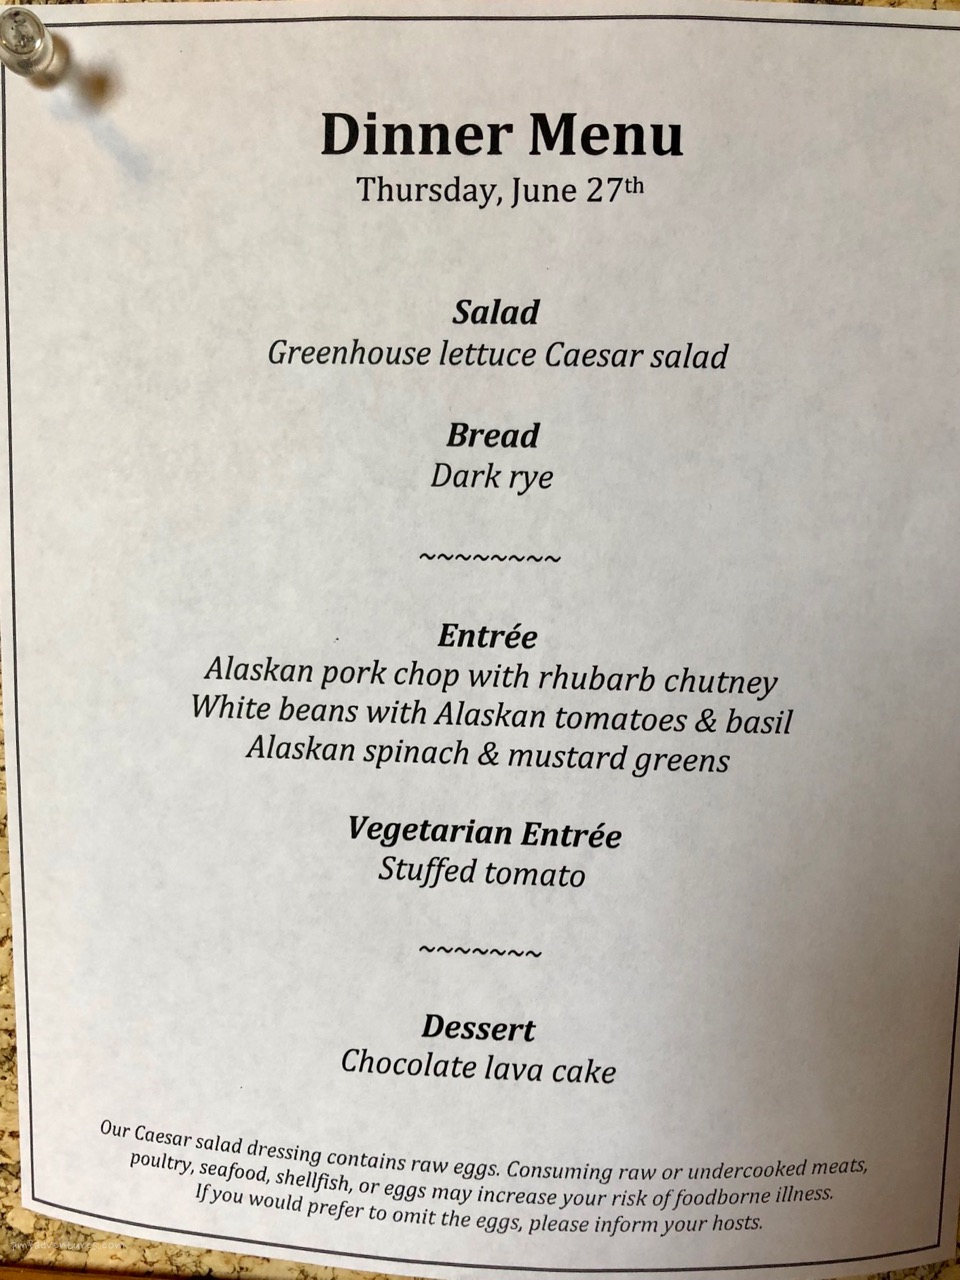 Dinner Menu
Thursday, June 27th
Salad
Greenhouse lettuce Caesar salad
Bread
Dark rye
~~~~~~~~
Entrée
Alaskan pork chop with rhubarb chutney
White beans with Alaskan tomatoes & basil
Alaskan spinach & mustard greens
Vegetarian Entrée
Stuffed tomato
~~~~~~~
Dessert
Chocolate lava cake
Our Caesar salad dressing contains raw eggs. Consuming raw or undercooked meats,
poultry, seafood, shellfish, or eggs may increase your risk of foodborne illness.
If you would prefer to omit the eggs, please inform your hosts.